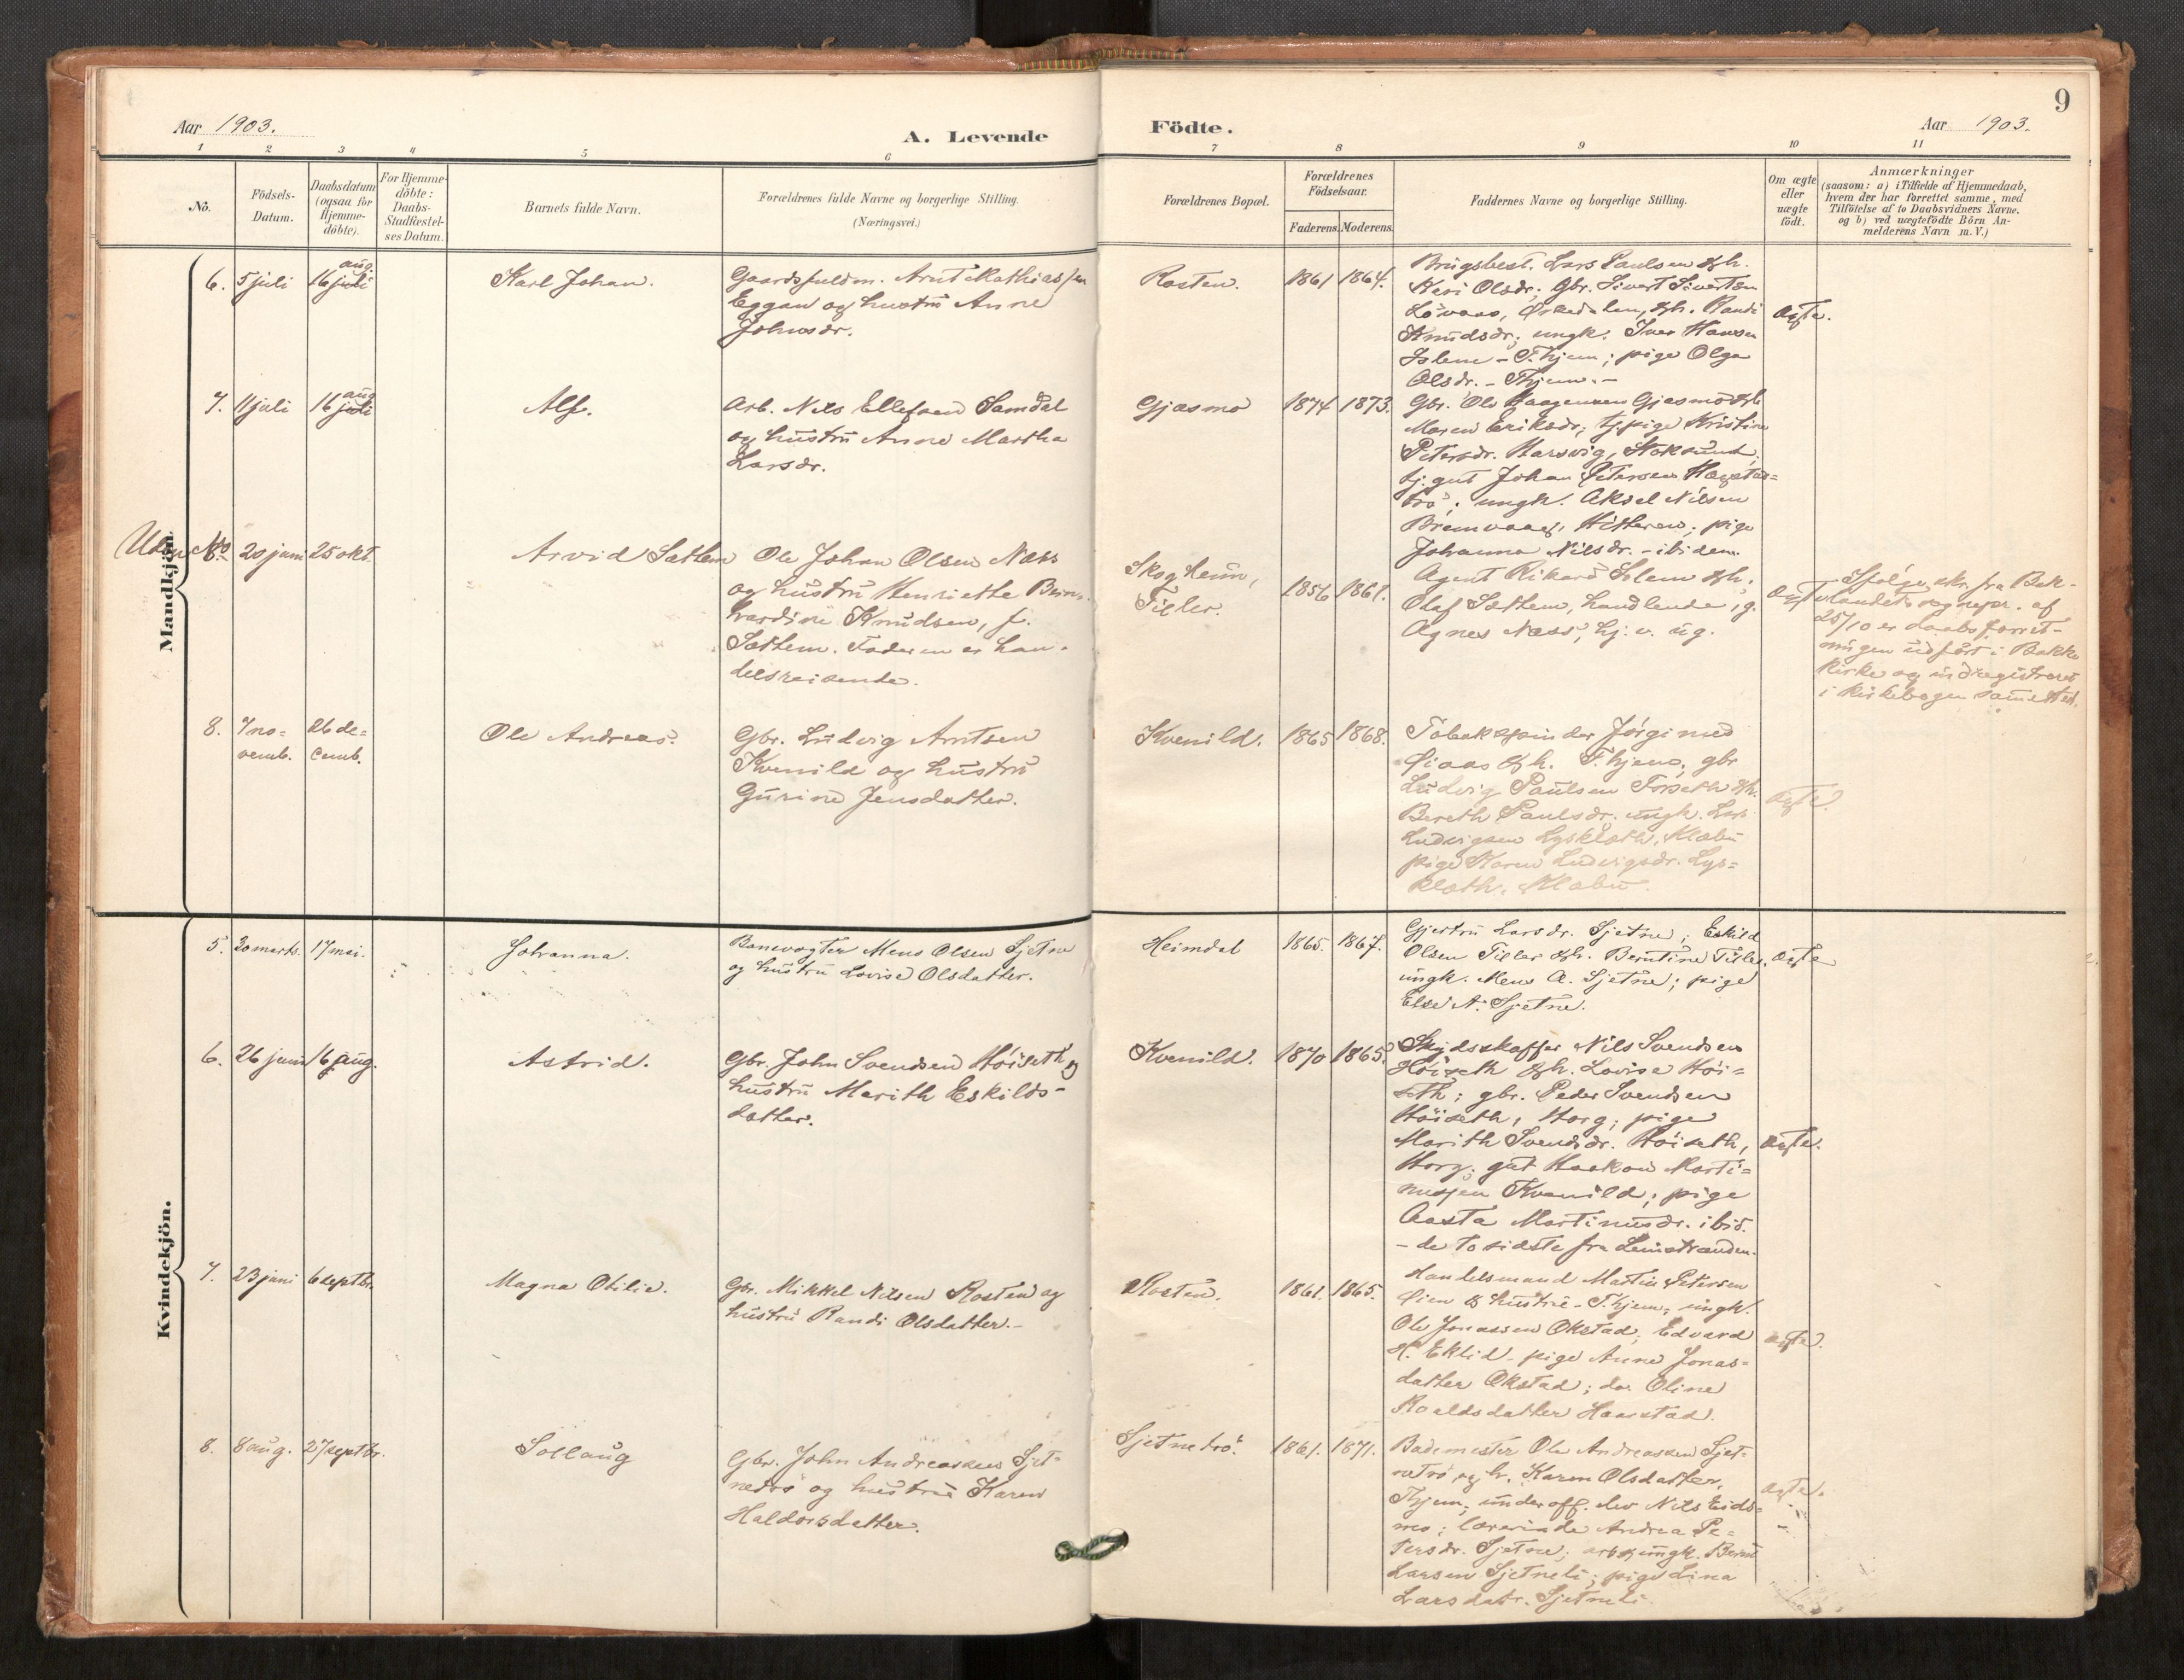 9
Aar 1903.
A. Levende
Födte.
Aar 1903.
1 2 3 4 5 6 7 8 9 10 11
No.
Födsels-
Datum.
Daabsdatum
(ogsaa for
Hjemme-
döbte).
For Hjemme-
döbte:
Daabs-
Stadfæstel-
ses Datum.
Barnets fulde Navn.
Forældrenes fulde Navne og borgerlige Stilling.
(Næringsvei.)
Forældrenes Bopæl.
Forældrenes
Födselsaar.
Faderens. Moderens.
Faddernes Navne og borgerlige Stilling.
Om ægte
eller
uægte
födt.
Anmærkninger
(saasom: a) i Tilfælde af Hjemmedaab,
hvem der har forrettet samme, med
Tilföielse af to Daabsvidners Navne.
og b) ved uægtefödte Börn An-
melderens Navn m. V.)
Mandkjön.
6. 5 juli 16 juli aug. Karl Johan.
Gaardsfuldm. Arnt Mathiassen
Eggan og hustru Anne
Johnsdr.
Rosten. 1861 1864.
Brugsbest. Lars Paulsen &h.
Kari Olsdr; Gbr. Sivert Sivertsen
Lövaas, Örkedalen, &h. Randi
Knudsdr; ungk. Iver Hansen
Solem - T.hjem; pige Olga
Olsdr. - Thjem. -
Ægte.
7. 11 juli 16 juli aug Alf.
Arb. Nils Ellefsen Samdal
og hustru Anne Martha
Larsdr.
Gjasmo 1874 1873.
Gbr. Ole Haagensen Gjasmo &h
Maren Eriksdr; tj.pige Kristine
Petersdr. Harsvig, Stoksund,
tj. gut Johan Petersen
trö; ungk. Aksel Nilsen
Bremvaag, Hitteren; pige
Johanna Nilsdr. - ibidem
Uden No 20 juni 25 okt. Arvid Sæthem
Ole Johan Olsen Næss
og hustru Henriette Bern-
hardine Knudsen, f.
Sæthem. Faderen er han-
delsreisende.
Skogheim,
Tiller.
1856 1861.
Agent Rikard Solem &h.
Olaf Sæthem, handlende, g.
Agnes Næss, hj. v. ug.
Ægte
Ifölge skr. fra Bak-
landets sognepr. af
25/10 er daabsforret-
ningen udfört i Bakke
Kirke og indregistreret
i Kirkebogen sammested.
8. 7 no-
vemb.
26 de-
cemb.
Ole Andreas.
Gbr. Ludvig Arntsen
Kvenild og hustru
Gurine Jensdatter.
Kvenild. 1865 1868.
Tobakspinder Jörgimed
Öiaas &h. T.hjem; gbr
Ludvig Paulsen Forseth &h.
Bereth Paulsdr. ungk. Lars
Ludvigsen Lysklæth, Klæbu
pige Karen Ludvigsdr. Lys-
klæth, Klæbu.
ægte.
Kvindekjön.
5. 30 marts. 17 mai. Johanna.
Banevogter Mens Olsen Sjetne
og hustru Lovise Olsdatter.
Heimdal 1865. 1867.
Gjertru Larsdr. Sjetne; Eskild
Olsen Tiller &h. Berntine Tiller.
ungk. Mens A. Sjetne; pige
Else A. Sjetne.
ægte
6. 26 juni 16 aug. Astrid.
Gbr. John Svendsen Höiseth og
hustru Marith Eskilds-
datter.
Kvenild. 1870 1865.
Skydsskaffer Nils Svendsen
Höiseth &h. Lovise Höi-
seth; gbr. Peder Svendsen
Höiseth, Horg; pige
Marith Svendsdr. Höiseth,
Horg; gut Haakon Marti-
nussen Kvenild; pige
Aasta Martinusdr. ibid.
- de to sidste fra Leinstranden.
ægte.
7. 23 juni 6 septbr. Magna Otilie.
Gbr. Mikkel Nilsen Rosten og
hustru Randi Olsdatter. -
Rosten. 1861. 1865.
Handelsmand Martin Petersen
Öien & hustru - T.hjem; ungk.
Ole Jonassen Okstad; Edvard
H. Eklid - pige Anne Jonas-
datter Okstad; do. Oline
Roaldsdatter Haarstad.
ægte.
8. 8 aug. 27 septbr. Sollaug
Gbr. John Andreassen Sjet-
netrö og hustru Karen
Haldorsdatter.
Sjetnetrö. 1861. 1871.
Bademester Ole Andreassen Sjet-
netrö og h. Karen Olsdatter,
Thjem; underoff. elev Nils Eids-
mo; lærerinde Andrea Pe-
tersdr. Sjetne; ungk. Bernt
Larsen Sjetneli; pige Lina
Larsdatr. Sjetneli
ægte.